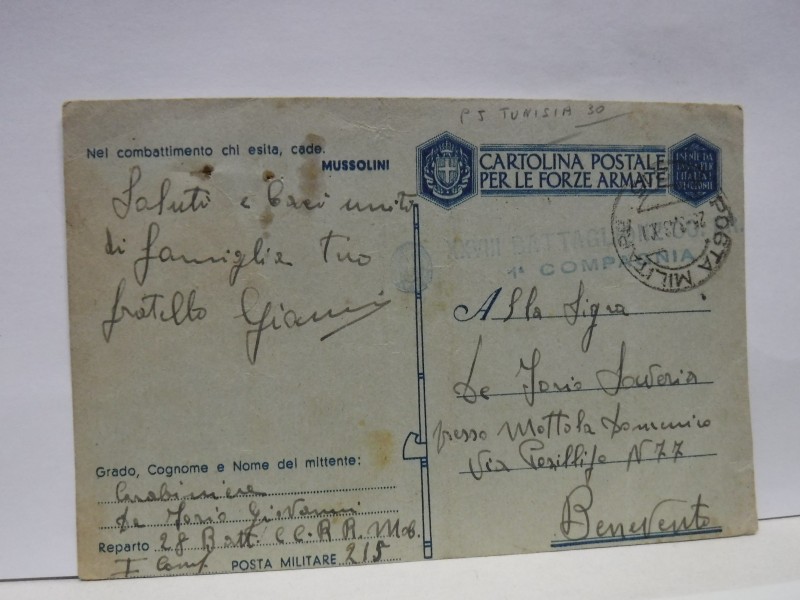 P5 TUNISIA 30
Nel combattimento chi esita, cade.
MUSSOLINI
Saluti e baci uniti
di famiglia tuo
fratello Gianni
Grado, Cognome e Nome del mittente:
Carabiniere
De Iorio Giovanni
Reparto 28 Batt. CC.RR. Mob.
I Comp. POSTA MILITARE 215
CARTOLINA POSTALE
PER LE FORZE ARMATE
ESENTE DA
POSTA MILITARE
1ª COMPAGNIA
Alla Sig.ra
De Iorio Saveria
presso Mottola Domenico
Via Posillipo N 77
Benevento